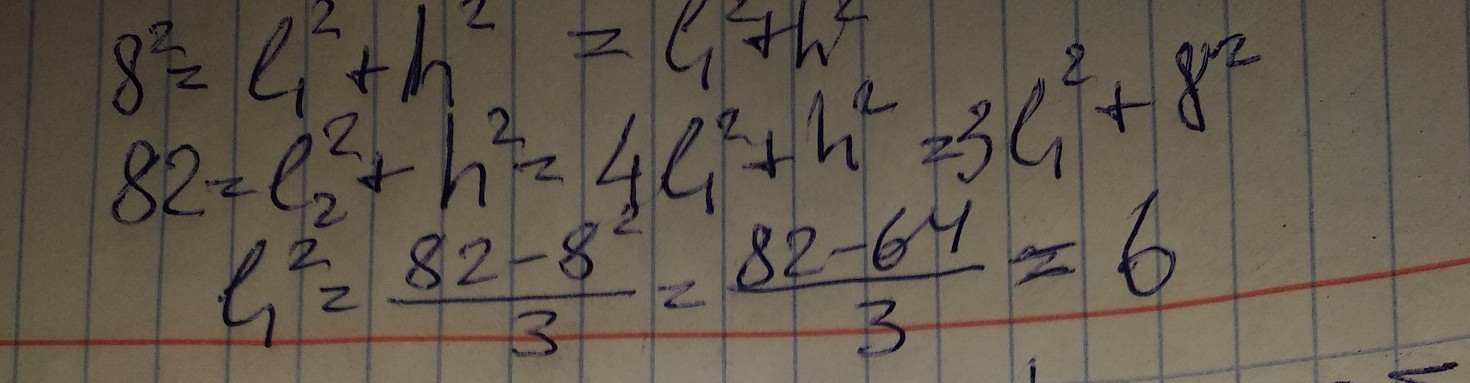 8² = l₁² + h² = l₁² + h²
82 = l₂² + h² = 4l₁² + h² = 3l₁² + 8²
l₁² = (82 - 8²)/3 = (82 - 64)/3 = 6